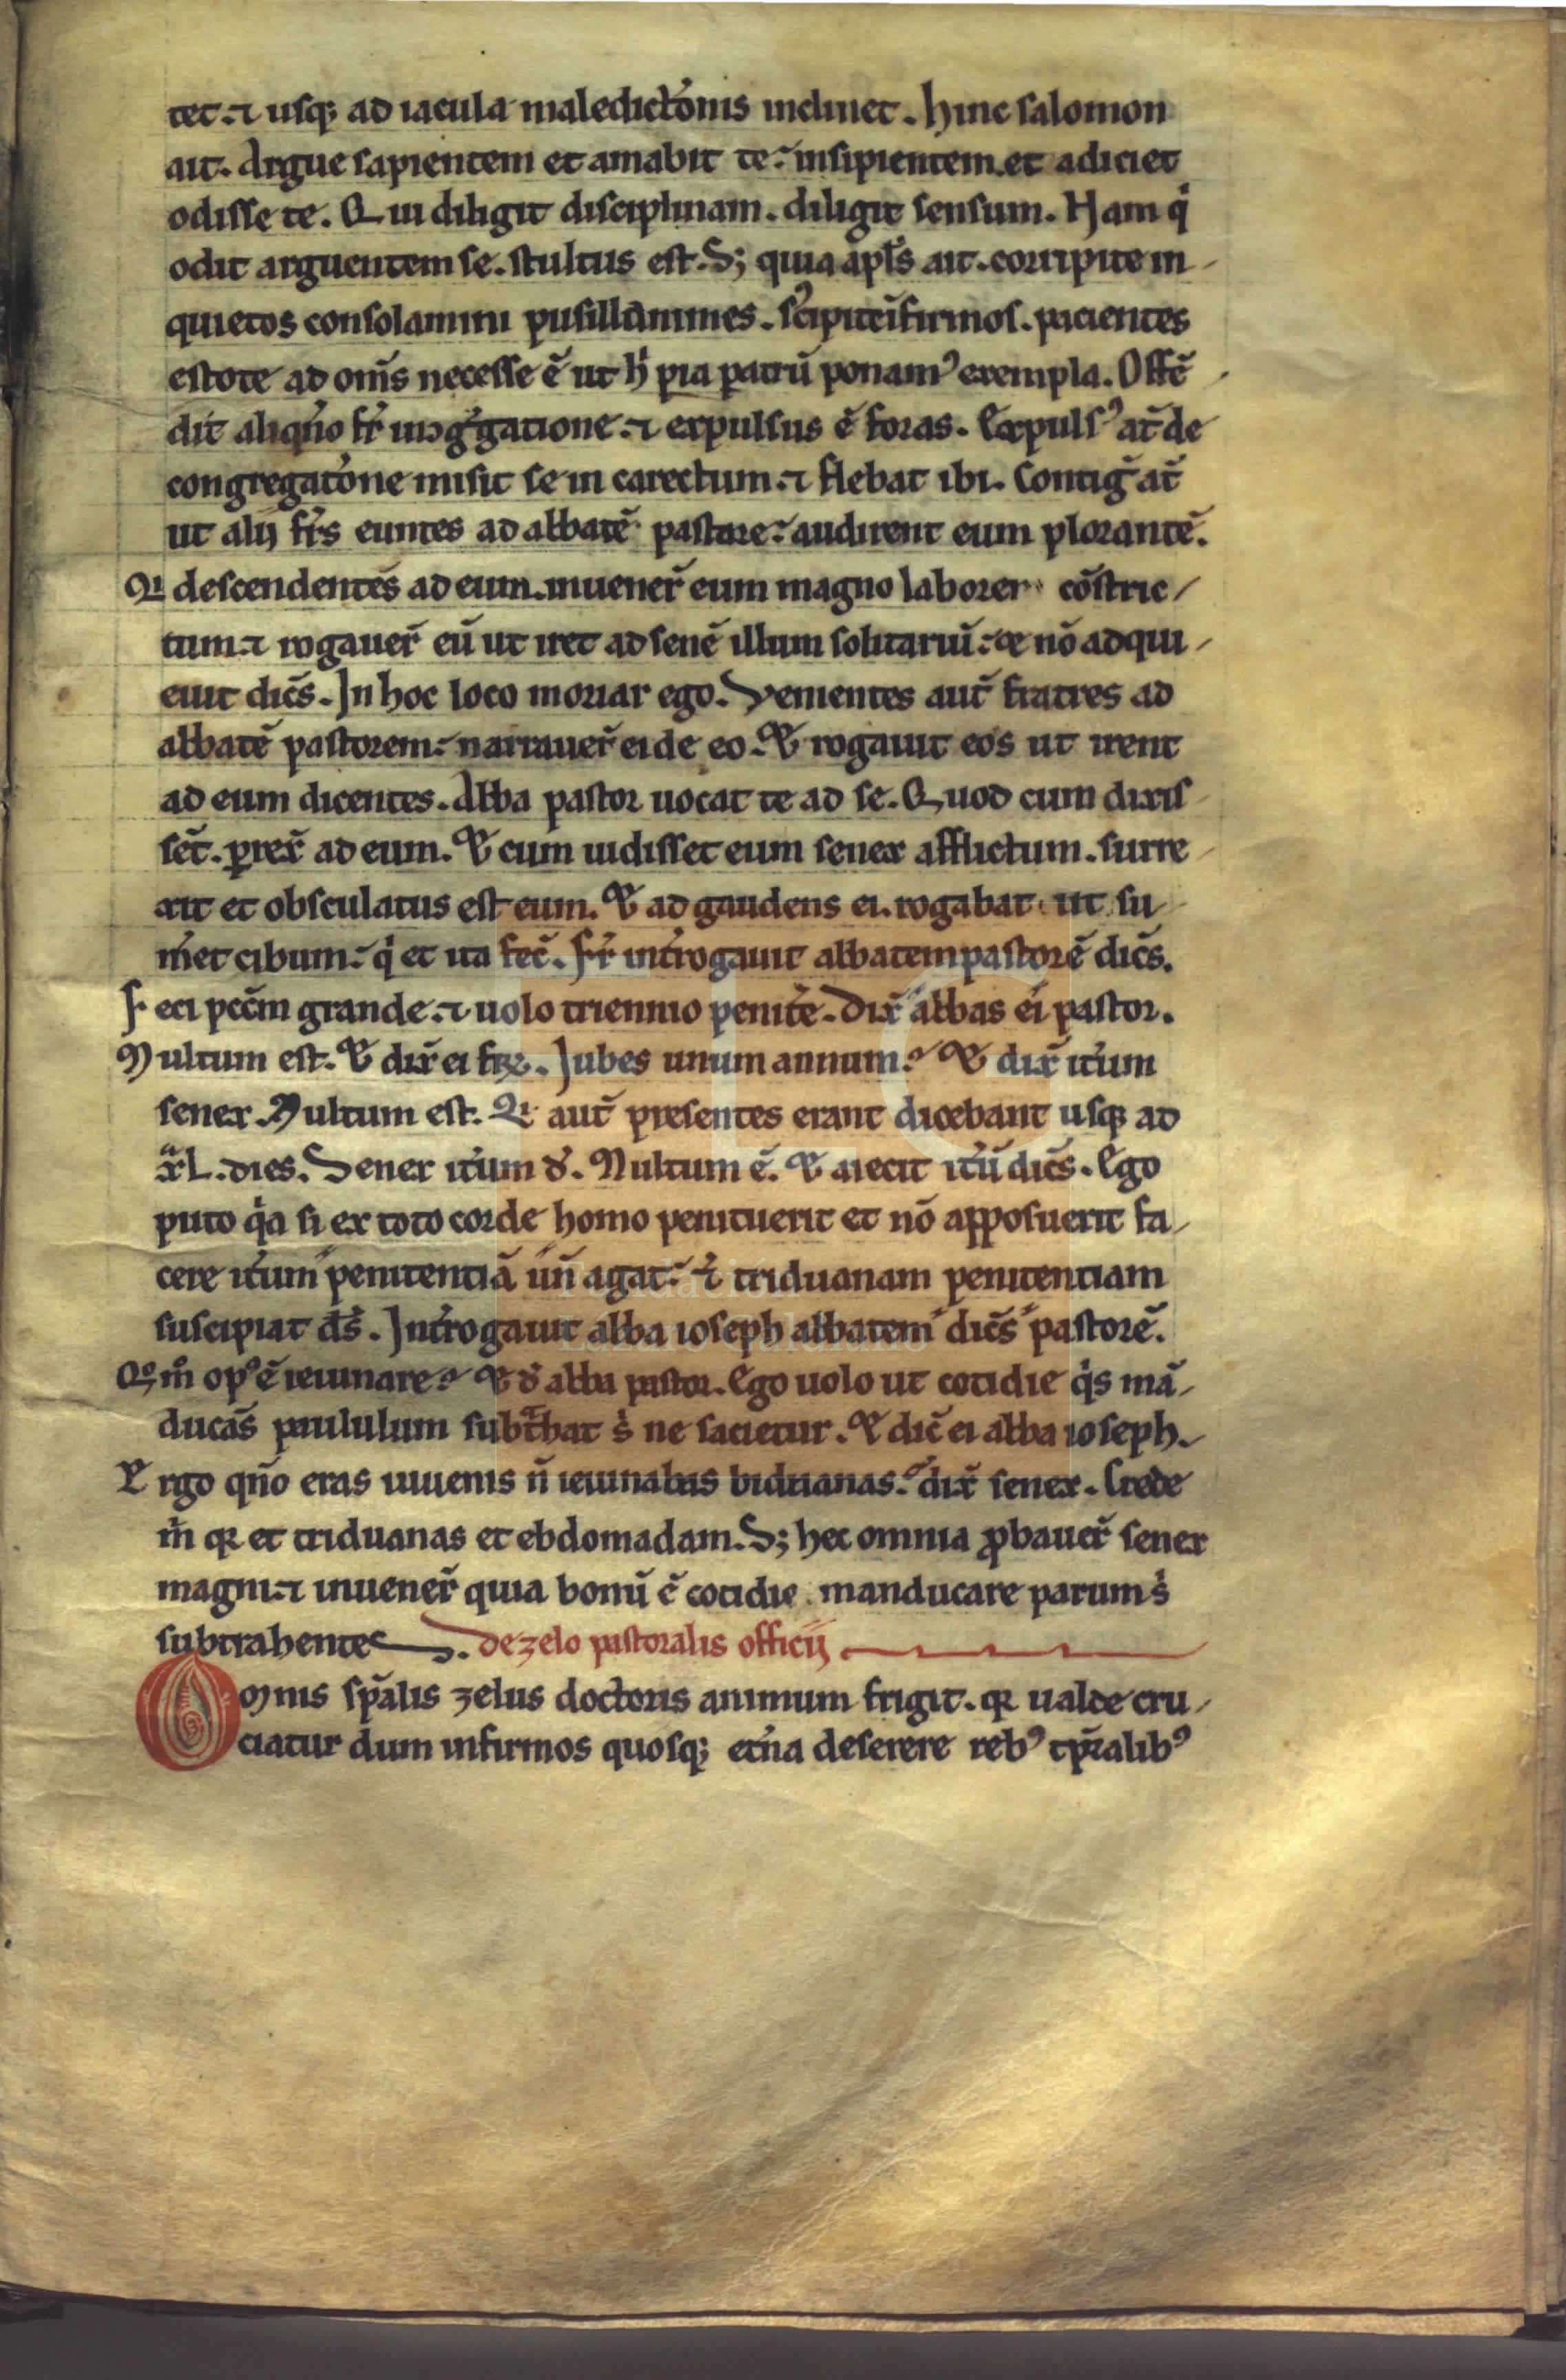 tet. ⁊ usq; ad iacula maledictõnis inclinet. hinc salomon
ait. Argue sapientem et amabit te. insipientem. et adiciet
odisse te. Qui diligit disciplinam. diligit sensum. Nam q̇
odit arguentem se. stultus est. S; quia apl̃s ait. corripite in
quietos consolamini pusillanimes. sꝰcipite ĩfirmos. pacientes
estote ad om̃s necesse ẽ ut ḣ pia patrũ ponamꝰ exempla. Offẽ
dit aliqño fr̃ in ɔg̃gatione. ⁊ expulsus ẽ foras. Expulsꝰ at̃ de
congregatõne misit se in carectum. ⁊ flebat ibi. Contig̃ at̃
ut alij fr̃s euntes ad abbatẽ pastore. audirent eum plorantẽ.
Qi descendentes ad eum. inuener̃ eum magno labore cõstric
tum. ⁊ rogauer̃ eũ ut iret ad senẽ illum solitariũ. & nõ adqui
euit dic̃s. In hoc loco moriar ego. Venientes aut̃ fratres ad
abbatẽ pastorem. narrauer̃ ei de eo. & rogauit eos ut irent
ad eum dicentes. Abba pastor uocat te ad se. Quod cum dixis
set̃. ꝑrex̃ ad eum. & cum uidisset eum senex afflictum. surre
xit et obsculatus est eum. & adgaudens ei. rogabat ut su
m̃et cibum. q̇ et ita fec̃. Fr̃ int̃rogauit abbatem pastorẽ dic̃s.
Feci pcc̃m grande. ⁊ uolo triennio penit̃e. Dix̃ abbas ei pastor.
Multum est. & dix̃ ei fr̃. Iubes unum annum. & dix̃ it̃um
senex. Multum est. Qi aut̃ presentes erant dicebant usq; ad
xL. dies. Senex it̃um d̃. Multum ẽ. & aiecit it̃ũ dic̃s. Ego
puto q̇a si ex toto corde homo penituerit et nõ apposuerit fa
cere it̃um penitentiã uñ agat. ⁊ triduanam penitentiam
suscipiat d̃s. Int̃rogauit abba ioseph abbatem dic̃s pastorẽ.
Qͦm̊ opꝰ ẽ ieiunare. & d̃ abba pastor. Ego uolo ut cotidie q̇s mã
ducãs paululum subt̃hat s̃ ne sacietur. & dic̃ ei abba ioseph.
Ergo qño eras iuuenis ñ ieiunabas biduanas. dix̃ senex. Crede
m̃ qꝛ et triduanas et ebdomadam. S; hec omnia ꝓbauer̃ senex
magni. ⁊ inuener̃ quia bonũ ẽ cotidie manducare parum s̃
subtrahentes. de zelo pastoralis officij
Omnis sp̃alis zelus doctoris animum frigit. qꝛ ualde cru
ciatur dum infirmos quosq; et̃na deserere rebꝰ tp̃ralibꝰ